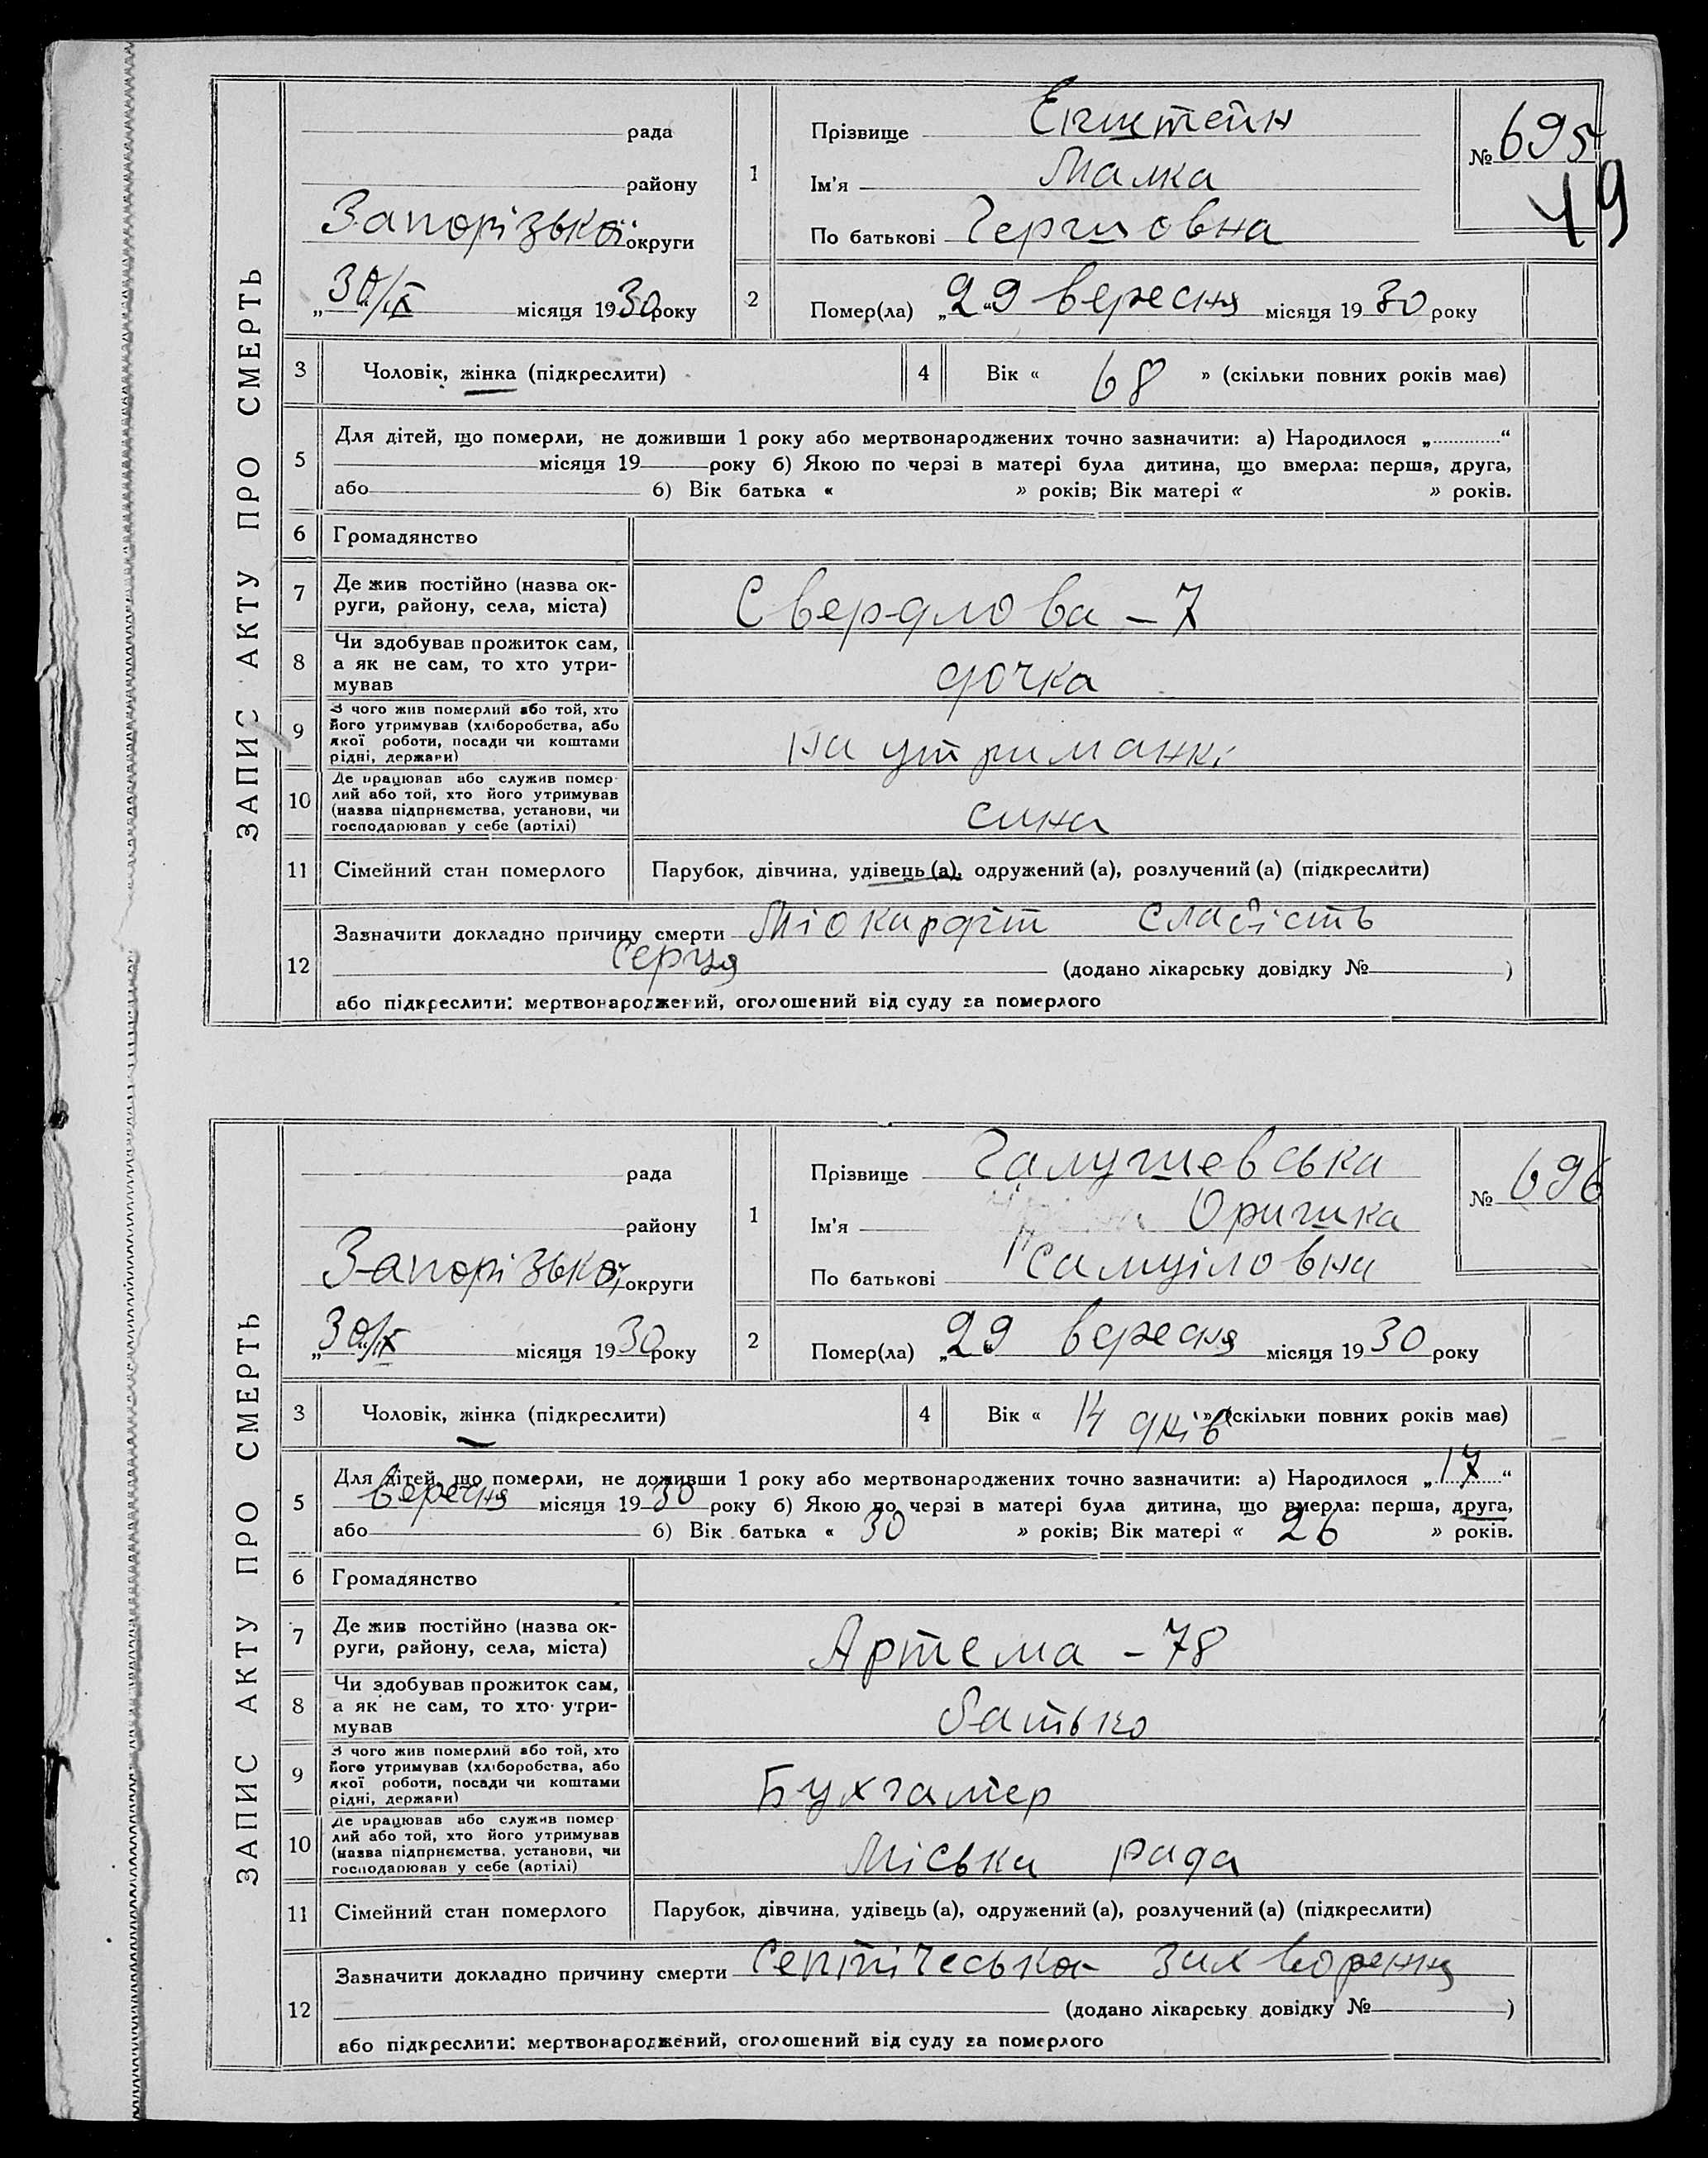 ЗАПИС АКТУ ПРО СМЕРТЬ
рада
району
Запорізької округи
„30/IX місяця 1930 року
1
Прізвище Екштейн
Ім'я Малка
По батькові Гершовна
№ 695
49
2
Помер(ла) „29“ вересня місяця 1930 року
3
Чоловік, жінка (підкреслити)
4
Вік « 68 » (скільки повних років має)
5
Для дітей, що померли, не доживши 1 року або мертвонароджених точно зазначити: а) Народилося „ “
місяця 19 року б) Якою по черзі в матері була дитина, що вмерла: перша, друга,
або б) Вік батька « » років; Вік матері « » років.
6
Громадянство
7
Де жив постійно (назва ок-
руги, району, села, міста)
Свердлова – 7
8
Чи здобував прожиток сам,
а як не сам, то хто утри-
мував
дочка
9
З чого жив померлий або той, хто
його утримував (хліборобства, або
якої роботи, посади чи коштами
рідні, держави)
на утриманні
10
Де працював або служив помер-
лий або той, хто його утримував
(назва підприємства, установи, чи
господарював у себе (артілі)
сина
11
Сімейний стан померлого
Парубок, дівчина, удівець (а), одружений (а), розлучений (а) (підкреслити)
12
Зазначити докладно причину смерти Міокардіт слабість
серця (додано лікарську довідку № )
або підкреслити: мертвонароджений, оголошений від суду за померлого
ЗАПИС АКТУ ПРО СМЕРТЬ
рада
району
Запорізької округи
„30/IX місяця 1930 року
1
Прізвище Галушевська
Ім'я Оришка
По батькові Самуіловна
№ 696
2
Помер(ла) „29 вересня місяця 1930 року
3
Чоловік, жінка (підкреслити)
4
Вік « 14 днів » (скільки повних років має)
5
Для дітей, що померли, не доживши 1 року або мертвонароджених точно зазначити: а) Народилося „17“
вересня місяця 1930 року б) Якою по черзі в матері була дитина, що вмерла: перша, друга,
або б) Вік батька « 30 » років; Вік матері « 26 » років.
6
Громадянство
7
Де жив постійно (назва ок-
руги, району, села, міста)
Артема – 78
8
Чи здобував прожиток сам,
а як не сам, то хто утри-
мував
батько
9
З чого жив померлий або той, хто
його утримував (хліборобства, або
якої роботи, посади чи коштами
рідні, держави)
Бухгалтер
10
Де працював або служив помер-
лий або той, хто його утримував
(назва підприємства, установи, чи
господарював у себе (артілі)
Міська рада
11
Сімейний стан померлого
Парубок, дівчина, удівець (а), одружений (а), розлучений (а) (підкреслити)
12
Зазначити докладно причину смерти Септічеська захворення
(додано лікарську довідку № )
або підкреслити: мертвонароджений, оголошений від суду за померлого